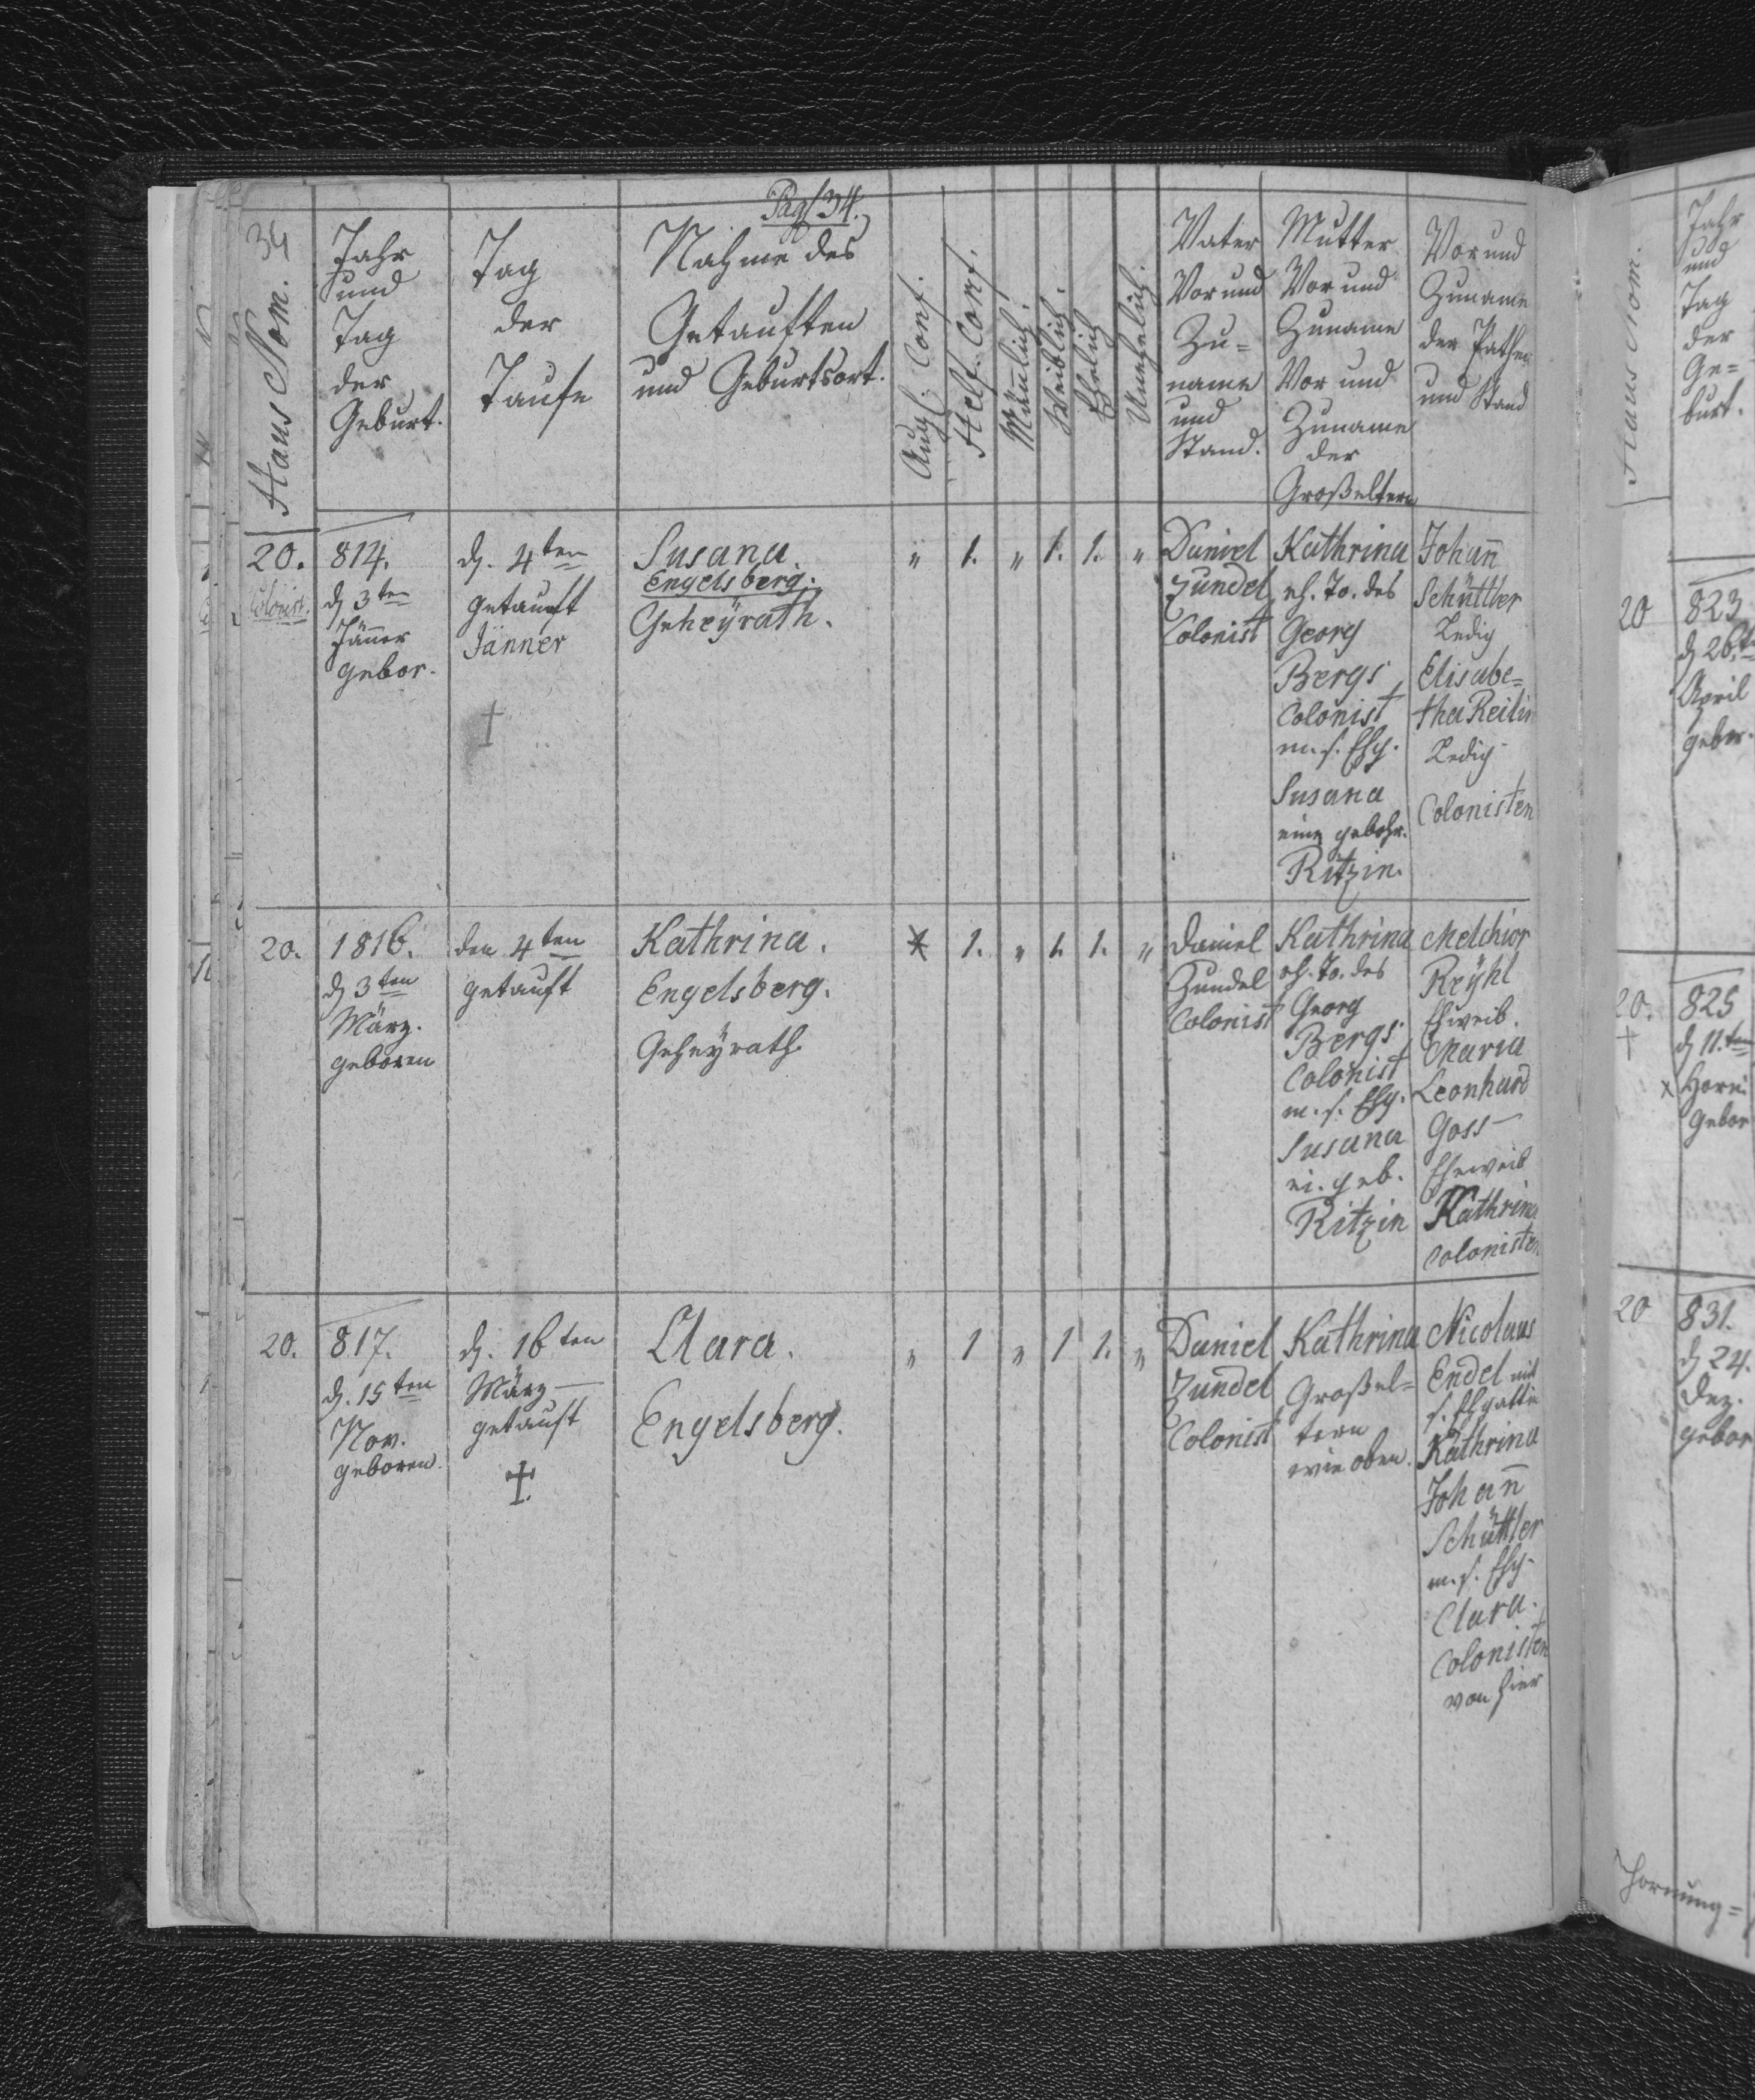 Pag. 34.
34
Haus Nom.
Jahr
und
Tag
der
Geburt.
Tag
der
Taufe
Nahme des
Getauften
und Geburtsort.
Augs. Conf.
Helf. Conf.
Mänlich.
Weiblich.
Ehelich
Unehelich.
Vater
Vor und
Zu=
name
und
Stand.
Mutter
Vor und
Zuname
Vor und
Zuname
der
Großeltern
Vor und
Zuname
der Pathen
und Stand
20.
Colonist.
814.
d 3ten
Jänner
gebor.
d. 4ten
getauft
Jänner
†
Susana.
Engelsberg.
Geheÿrath.
" 1. " 1. 1. "
Daniel
Zundel
Colonist
Kathrina
eh. To. des
Georg
Bergs
Colonist
m. s. Ehg.
Susana
eine gebohr.
Ritzin.
Johan̄
Schüttler
Ledig
Elisabe=
tha Reitin
Ledig
Colonisten
20.
1816.
d 3ten
März.
geboren
den 4ten
getauft
Kathrina.
Engelsberg.
Geheÿrath
* 1. " 1. 1. "
Daniel
Zundel
Colonist
Kathrina
eh. To. des
Georg
Bergs
Colonist
m. s. Ehg.
Susana
ei. geb.
Ritzin
Melchior
Reÿhl
Ehweib.
Maria
Leonhard
Goss
Eheweib
Kathrina
Colonisten
20.
817.
d. 15ten
Nov.
geboren.
d. 16ten
März
getauft
†.
Clara.
Engelsberg.
" 1 " 1 1. "
Daniel
Zundel
Colonist
Kathrina
Großel=
tern
wie oben.
Nicolaus
Endel mit
s. Ehgattin
Kathrina
Johan̄
Schüttler
m. s. Ehg
Clara.
Colonisten
von hier
Haus Nom.
Jahr
und
Tag
der
Ge=
burt.
20
823
d 26.t
April
gebor.
20.
†
825
d 11.ten
x Horn.
gebor
20
831.
d 24.
Dez.
gebor
Hornung=